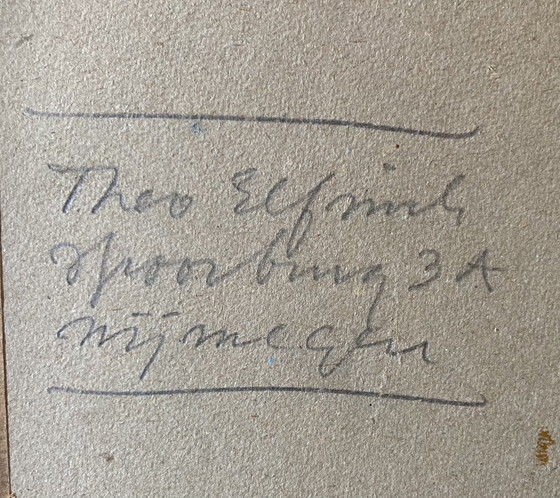 Theo Elfrinck
Spoorbrug 3A
Nijmegen